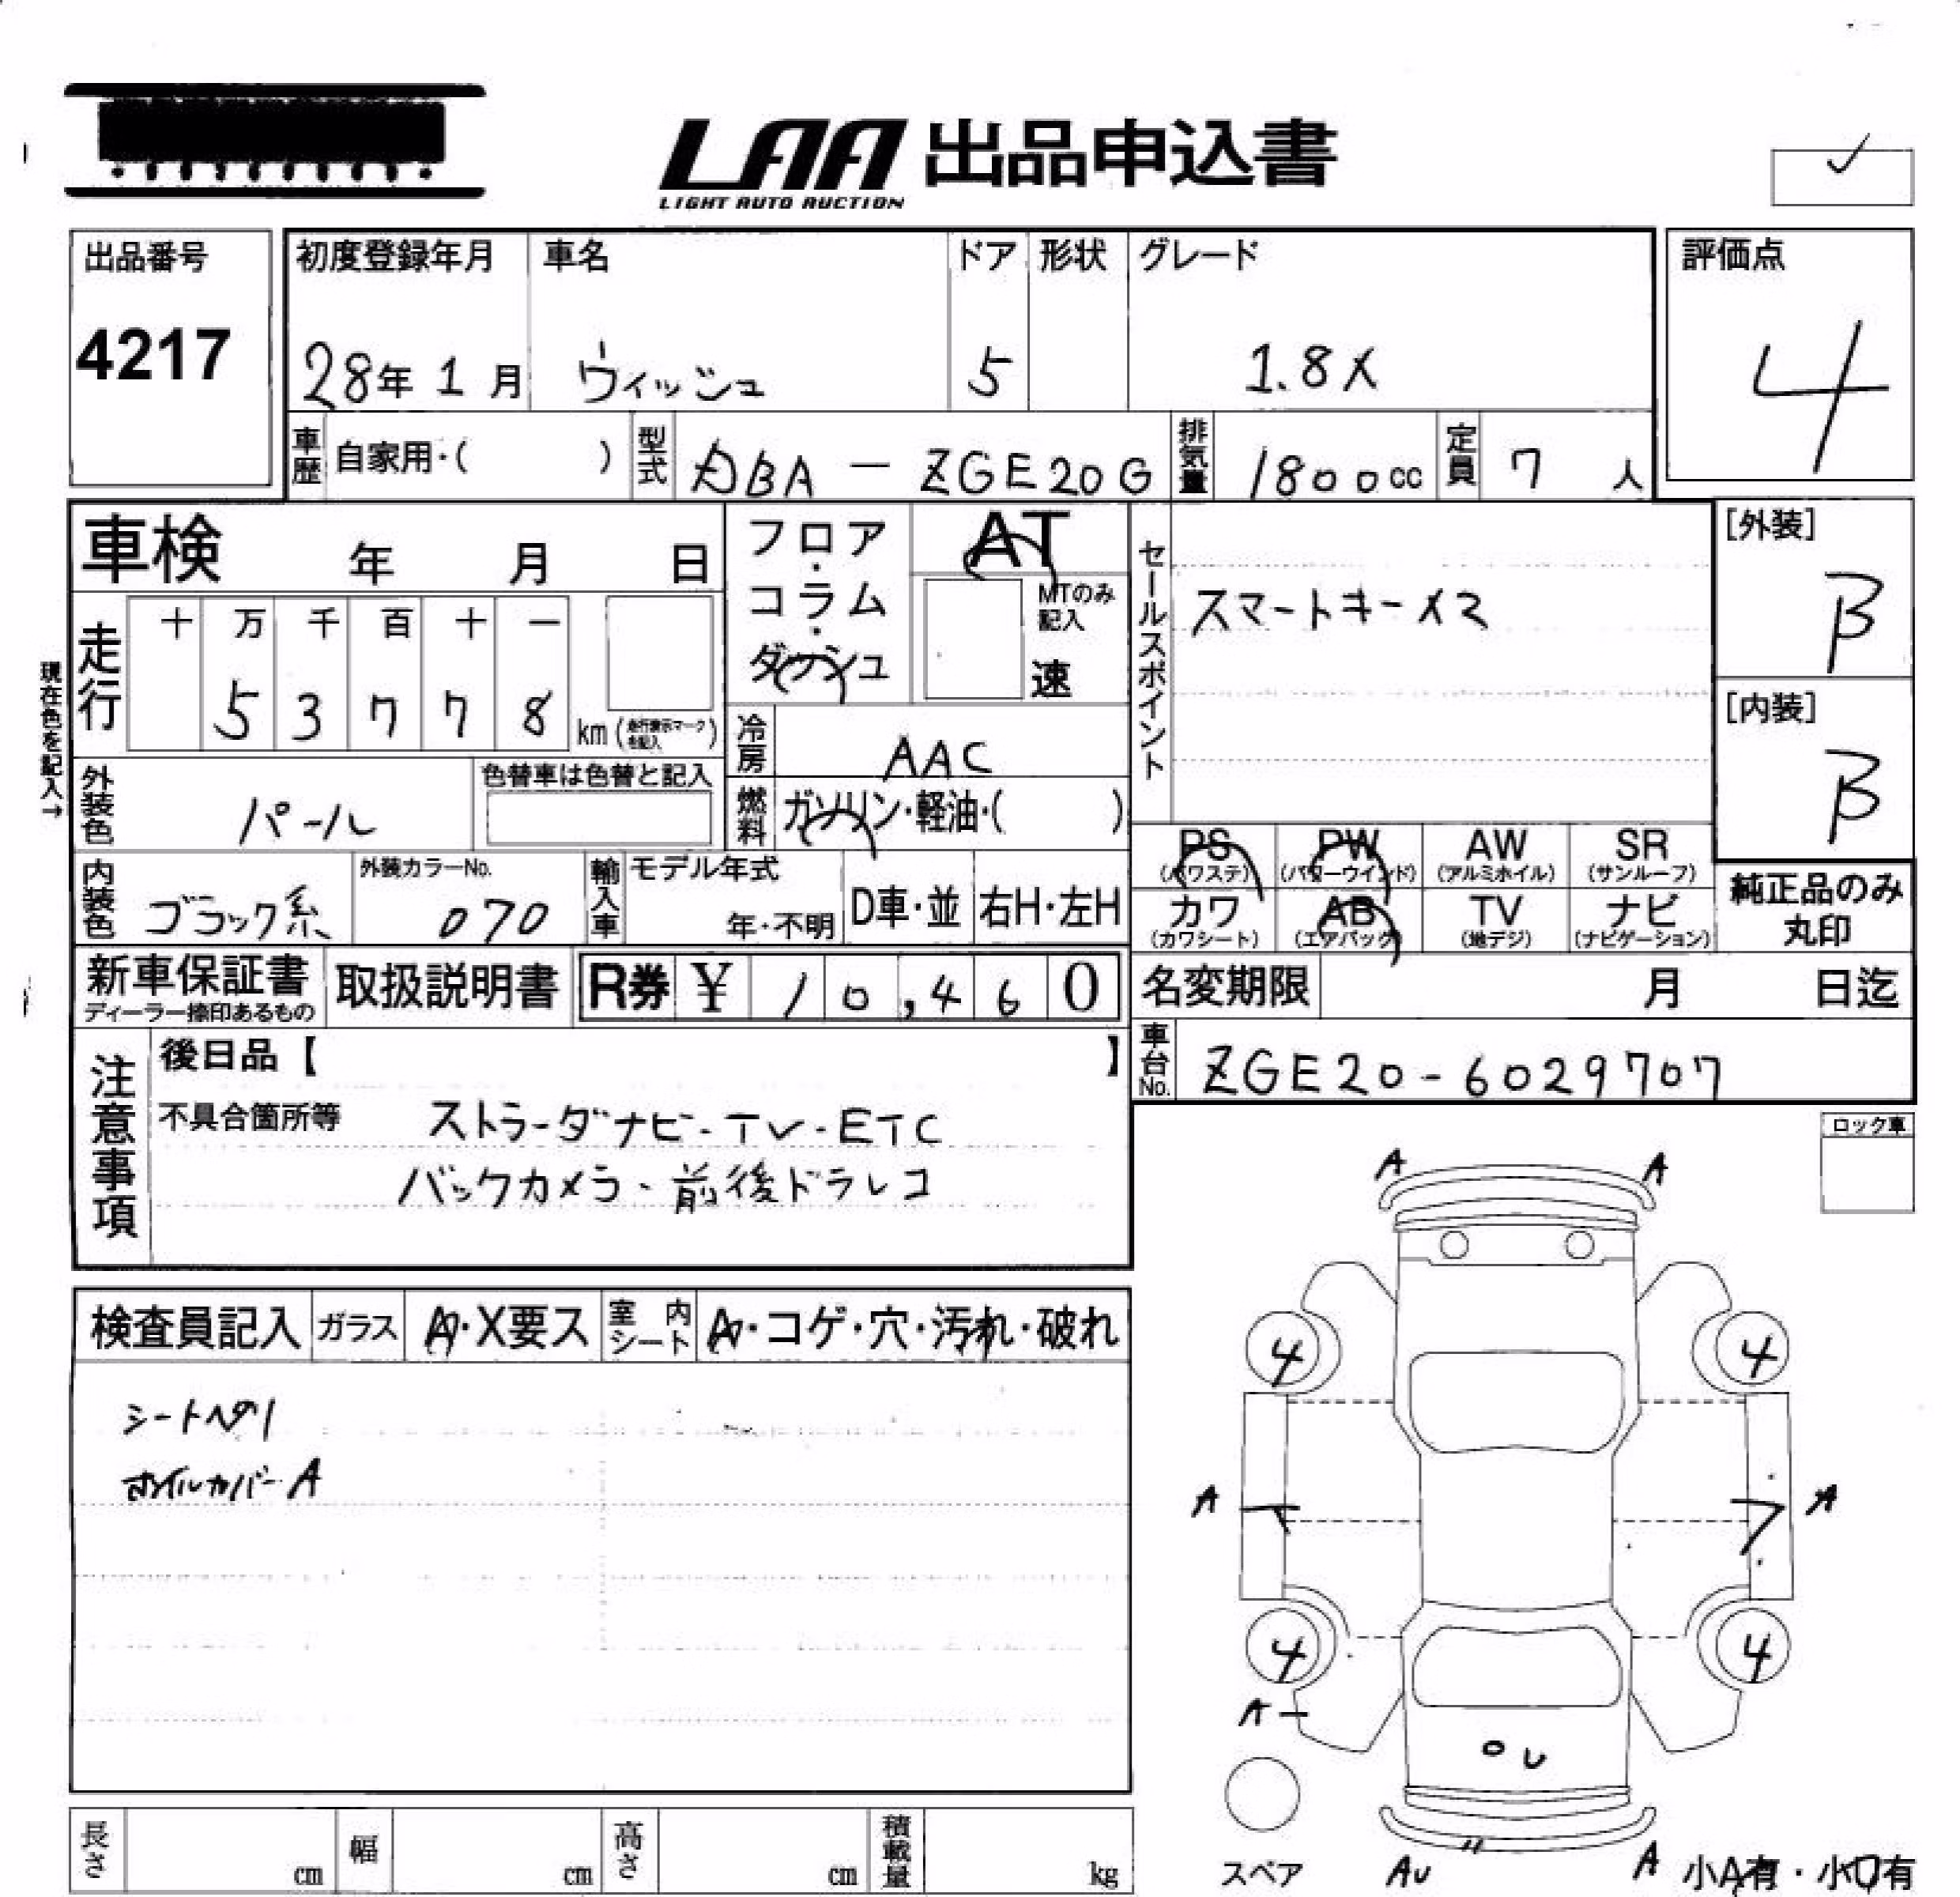 LAA 出品申込書
LIGHT AUTO AUCTION
出品番号
4217
初度登録年月 車名 ドア 形状 グレード
28年 1月 ウィッシュ 5 1.8X
評価点
4
車歴 自家用・( ) 型式 DBA - ZGE20G 排気量 1800cc 定員 7人
車検 年 月 日
フロア・コラム・ダッシュ
AT
MTのみ記入
速
セールスポイント
スマートキーメマ
[外装]
B
[内装]
B
現在色を記入→
走行 十 万 千 百 十 一
5 3 7 7 8 km (走行表示マークを記入)
冷房 AAC
外装色 パール
色替車は色替と記入
燃料 ガソリン・軽油・( )
PS (パワステ) PW (パワーウインド) AW (アルミホイル) SR (サンルーフ)
カワ (カワシート) AB (エアバック) TV (地デジ) ナビ (ナビゲーション)
純正品のみ丸印
内装色 ブラック系
外装カラーNo. 070
輸入車 モデル年式 年・不明 D車・並 右H・左H
新車保証書 ディーラー捺印あるもの
取扱説明書
R券 ¥ 10,460
名変期限 月 日迄
車台No. ZGE20-6029707
注意事項
後日品【 】
不具合箇所等 ストラーダナビ・TV・ETC
バックカメラ・前後ドラレコ
ロック車
検査員記入 ガラス A・X要ス 室内シート A・コゲ・穴・汚れ・破れ
シートヘタリ
ホイルカバーA
A A
4 4
A A
4 4
A
U
スペア
AU A
小A有・小U有
長さ cm 幅 cm 高さ cm 積載量 kg